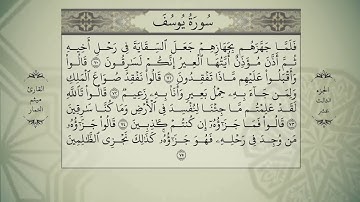 سُورَةُ يُوسُفَ
فَلَمَّا جَهَّزَهُم بِجَهَازِهِمْ جَعَلَ ٱلسِّقَايَةَ فِى رَحْلِ أَخِيهِ
ثُمَّ أَذَّنَ مُؤَذِّنٌ أَيَّتُهَا ٱلْعِيرُ إِنَّكُمْ لَسَٰرِقُونَ ۝٧٠ قَالُوا۟
وَأَقْبَلُوا۟ عَلَيْهِم مَّاذَا تَفْقِدُونَ ۝٧١ قَالُوا۟ نَفْقِدُ صُوَاعَ ٱلْمَلِكِ
وَلِمَن جَآءَ بِهِۦ حِمْلُ بَعِيرٍ وَأَنَا۠ بِهِۦ زَعِيمٌ ۝٧٢ قَالُوا۟ تَٱللَّهِ
لَقَدْ عَلِمْتُم مَّا جِئْنَا لِنُفْسِدَ فِى ٱلْأَرْضِ وَمَا كُنَّا سَٰرِقِينَ
۝٧٣ قَالُوا۟ فَمَا جَزَٰٓؤُهُۥٓ إِن كُنتُمْ كَٰذِبِينَ ۝٧٤ قَالُوا۟ جَزَٰٓؤُهُۥ
مَن وُجِدَ فِى رَحْلِهِۦ فَهُوَ جَزَٰٓؤُهُۥ ۚ كَذَٰلِكَ نَجْزِى ٱلظَّٰلِمِينَ
۝٧٥
الجزء
الثالث
عشر
القارئ
ميثم
التمار